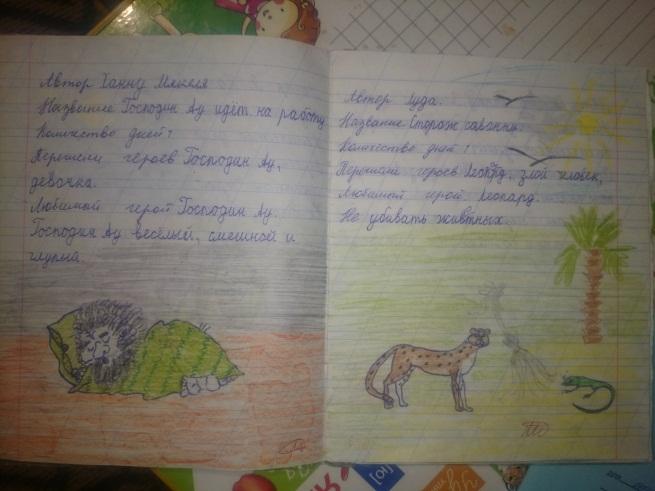 Автор Ханну Мякеля
Название Господин Ау идёт на работу
Количство дней 1
Перечисли героев Господин Ау,
девочка.
Любимой герой Господин Ау.
Господин Ау весёлый, смешной и
глупый.
Автор Луда.
Название Сторож саванны.
Количество дней 1
Перечисли героев Леопард, злой человек,
Любимый герой Леопард.
Не убивать жывтных.